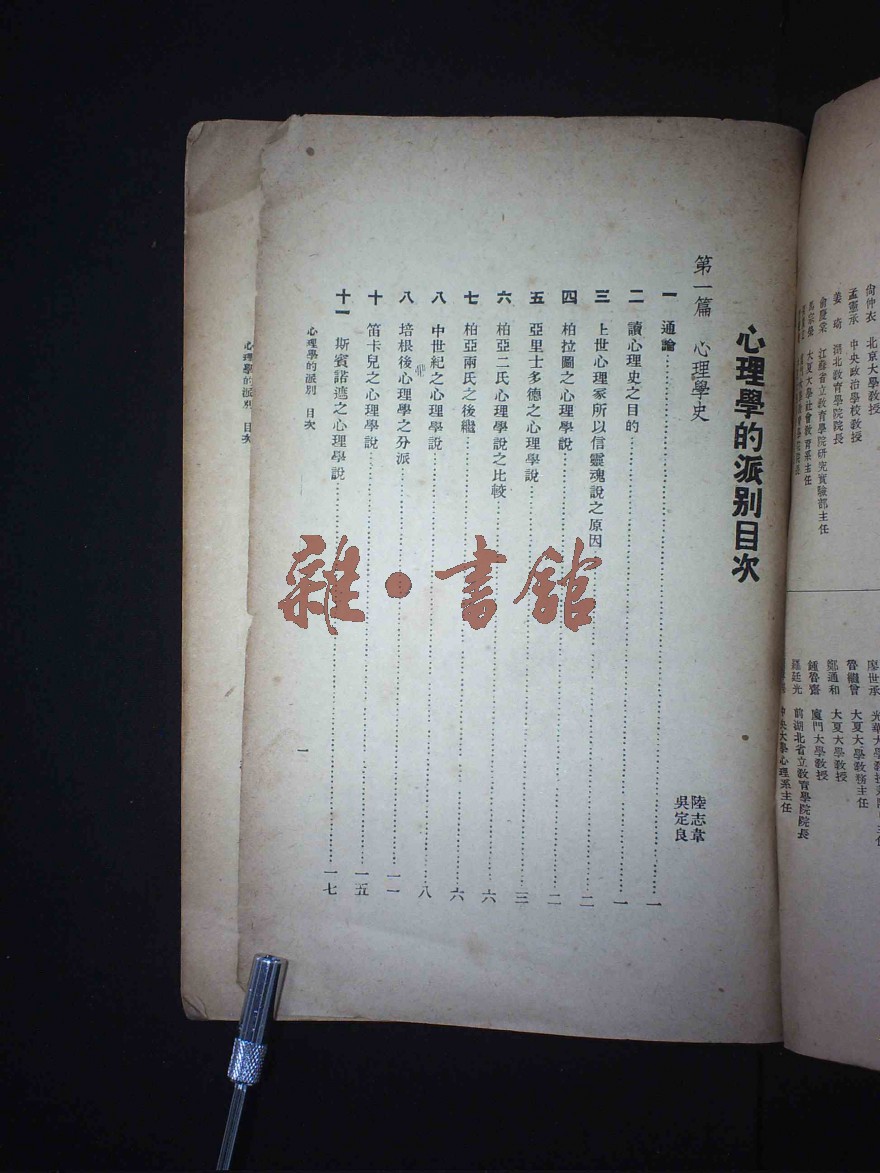 尙仲衣 北京大學教授
孟憲承 中央政治學校教授
姜琦 湖北教育學院院長
俞慶棠 江蘇省立教育學院研究實驗部主任
馬宗榮 大夏大學社會教育系主任
廖世承 光華大學
魯繼曾 大夏大學教務主任
鄭通和 大夏大學教授
鍾魯齋 廈門大學教授
羅廷光 前湖北省立教育學院院長
中央大學心理系主任
心理學的派别目次
第一篇 心理學史
陸志韋
吳定良
一 通論……一
二 讀心理史之目的……一
三 上世心理家所以信靈魂說之原因……二
四 柏拉圖之心理學說……二
五 亞里士多德之心理學說……三
六 柏亞二氏心理學說之比較……六
七 柏亞兩氏之後繼……六
八 中世紀之心理學說……八
八 培根後心理學之分派……一一
十 笛卡兒之心理學說……一五
十一 斯賓諾進之心理學說……一七
心理學的派別 目次
一
心理學的派別 目次
雜·書館